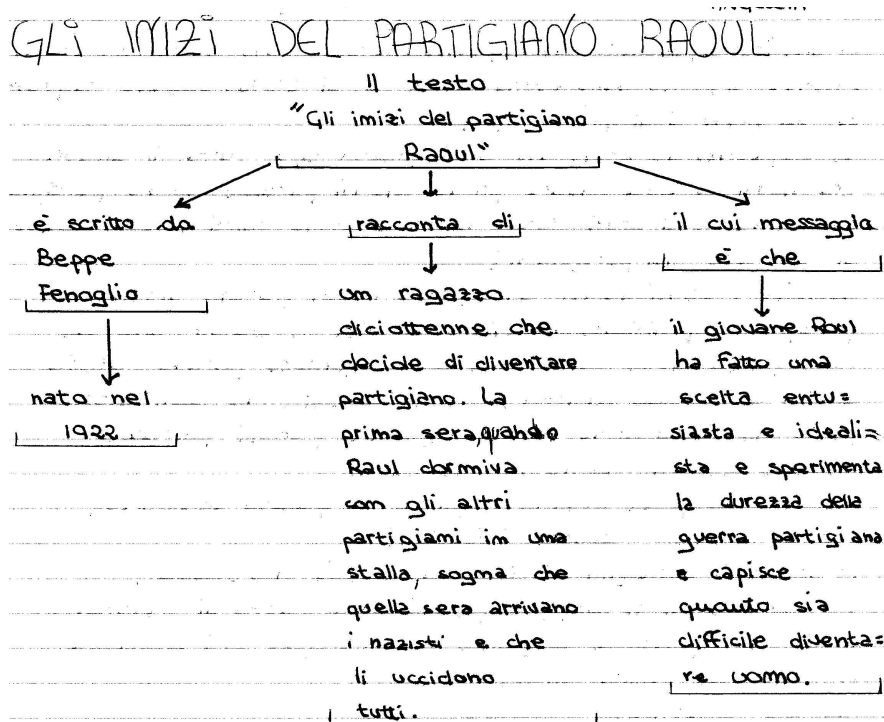 GLI INIZI DEL PARTIGIANO RAOUL
Il testo
"Gli inizi del partigiano
Raoul"
è scritto da
Beppe
Fenoglio
nato nel
1922
racconta di
un ragazzo
diciottenne che
decide di diventare
partigiano. La
prima sera, quando
Raul dormiva
con gli altri
partigiani in una
stalla, sogna che
quella sera arrivano
i nazisti e che
li uccidono
tutti.
il cui messaggio
è che
il giovane Raul
ha fatto una
scelta entu=
siasta e ideali=
sta e sperimenta
la durezza della
guerra partigiana
e capisce
quanto sia
difficile diventa=
re uomo.